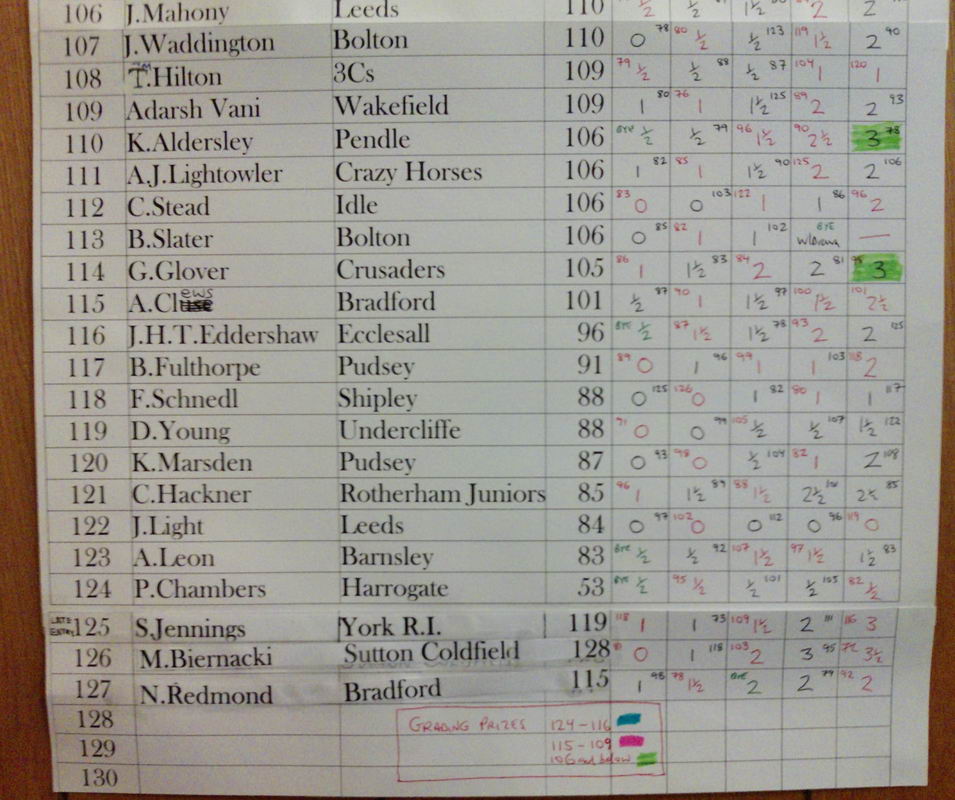 106 J.Mahony Leeds 110 ½ ½ 1½ 2 2
107 J.Waddington Bolton 110 0 78 80 ½ ½ 123 119 1½ 2 90
108 T.Hilton 3Cs 109 79 ½ ½ 88 ½ 87 104 1 120 1
109 Adarsh Vani Wakefield 109 1 80 76 1 1½ 125 89 2 2 93
110 K.Aldersley Pendle 106 BYE ½ ½ 79 96 1½ 90 2½ 3 78
111 A.J.Lightowler Crazy Horses 106 1 82 85 1 1½ 90 125 2 2 106
112 C.Stead Idle 106 83 0 0 103 122 1 1 86 96 2
113 B.Slater Bolton 106 0 85 82 1 1 102 BYE —
114 G.Glover Crusaders 105 86 1 1½ 83 84 2 2 81 95 3
115 A.Clews Bradford 101 ½ 87 90 1 1½ 97 100 1½ 101 2½
116 J.H.T.Eddershaw Ecclesall 96 BYE ½ 87 1½ 1½ 78 93 2 2 125
117 B.Fulthorpe Pudsey 91 89 0 1 96 99 1 1 103 118 2
118 F.Schnedl Shipley 88 0 125 126 0 1 82 80 1 1 117
119 D.Young Undercliffe 88 91 0 0 99 105 ½ ½ 107 1½ 122
120 K.Marsden Pudsey 87 0 93 98 0 ½ 104 82 1 2 108
121 C.Hackner Rotherham Juniors 85 96 1 1½ 89 88 1½ 2½ 2½ 85
122 J.Light Leeds 84 0 97 102 0 0 112 0 96 119 0
123 A.Leon Barnsley 83 BYE ½ ½ 92 107 1½ 97 1½ 1½ 83
124 P.Chambers Harrogate 53 BYE ½ 95 ½ ½ 101 ½ 105 82 ½
LATE ENTRY 125 S.Jennings York R.I. 119 118 1 1 73 109 1½ 2 111 116 3
126 M.Biernacki Sutton Coldfield 128 0 1 118 103 2 3 95 72 3½
127 N.Redmond Bradford 115 1 98 78 1½ BYE 2 2 79 92 2
128 GRADING PRIZES 124-116
129 115-109
106 and below
130